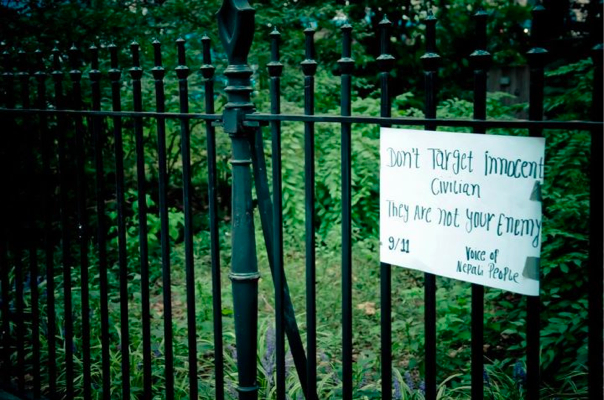 Don't Target innocent
Civilian
They Are not your Enemy
9/11
Voice of
Nepali People